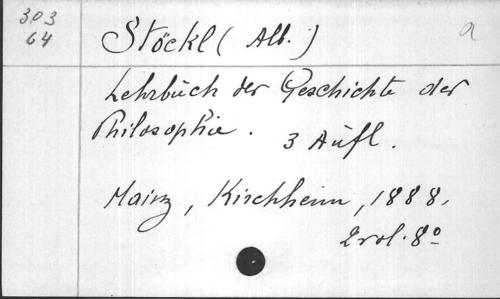 303
64
Stöckl (Alb.)
a
Lehrbuch der Geschichte der
Philosophie. 3 Aufl.
Mainz, Kirchheim, 1888.
2 vol. 8º